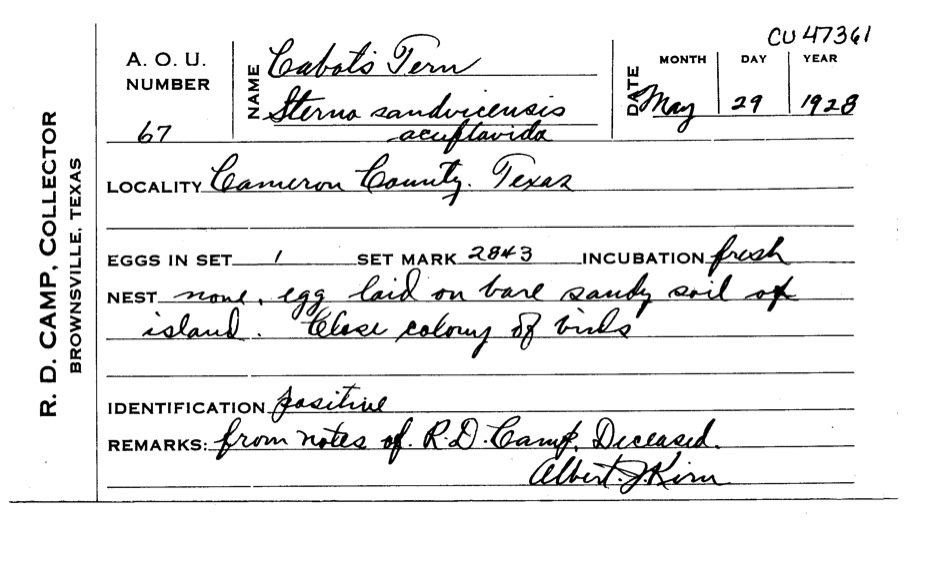 CU 47361
A. O. U.
NUMBER
67
NAME Cabot's Tern
Sterna sandvicensis
acuflavida
DATE
MONTH DAY YEAR
May 29 1928
R. D. CAMP, COLLECTOR
BROWNSVILLE, TEXAS
LOCALITY Cameron County. Texas
EGGS IN SET 1 SET MARK 2843 INCUBATION fresh
NEST none, egg laid on bare sandy soil of
island. Close colony of birds
IDENTIFICATION positive
REMARKS: from notes of R.D. Camp, Deceased.
Albert J. Kirn